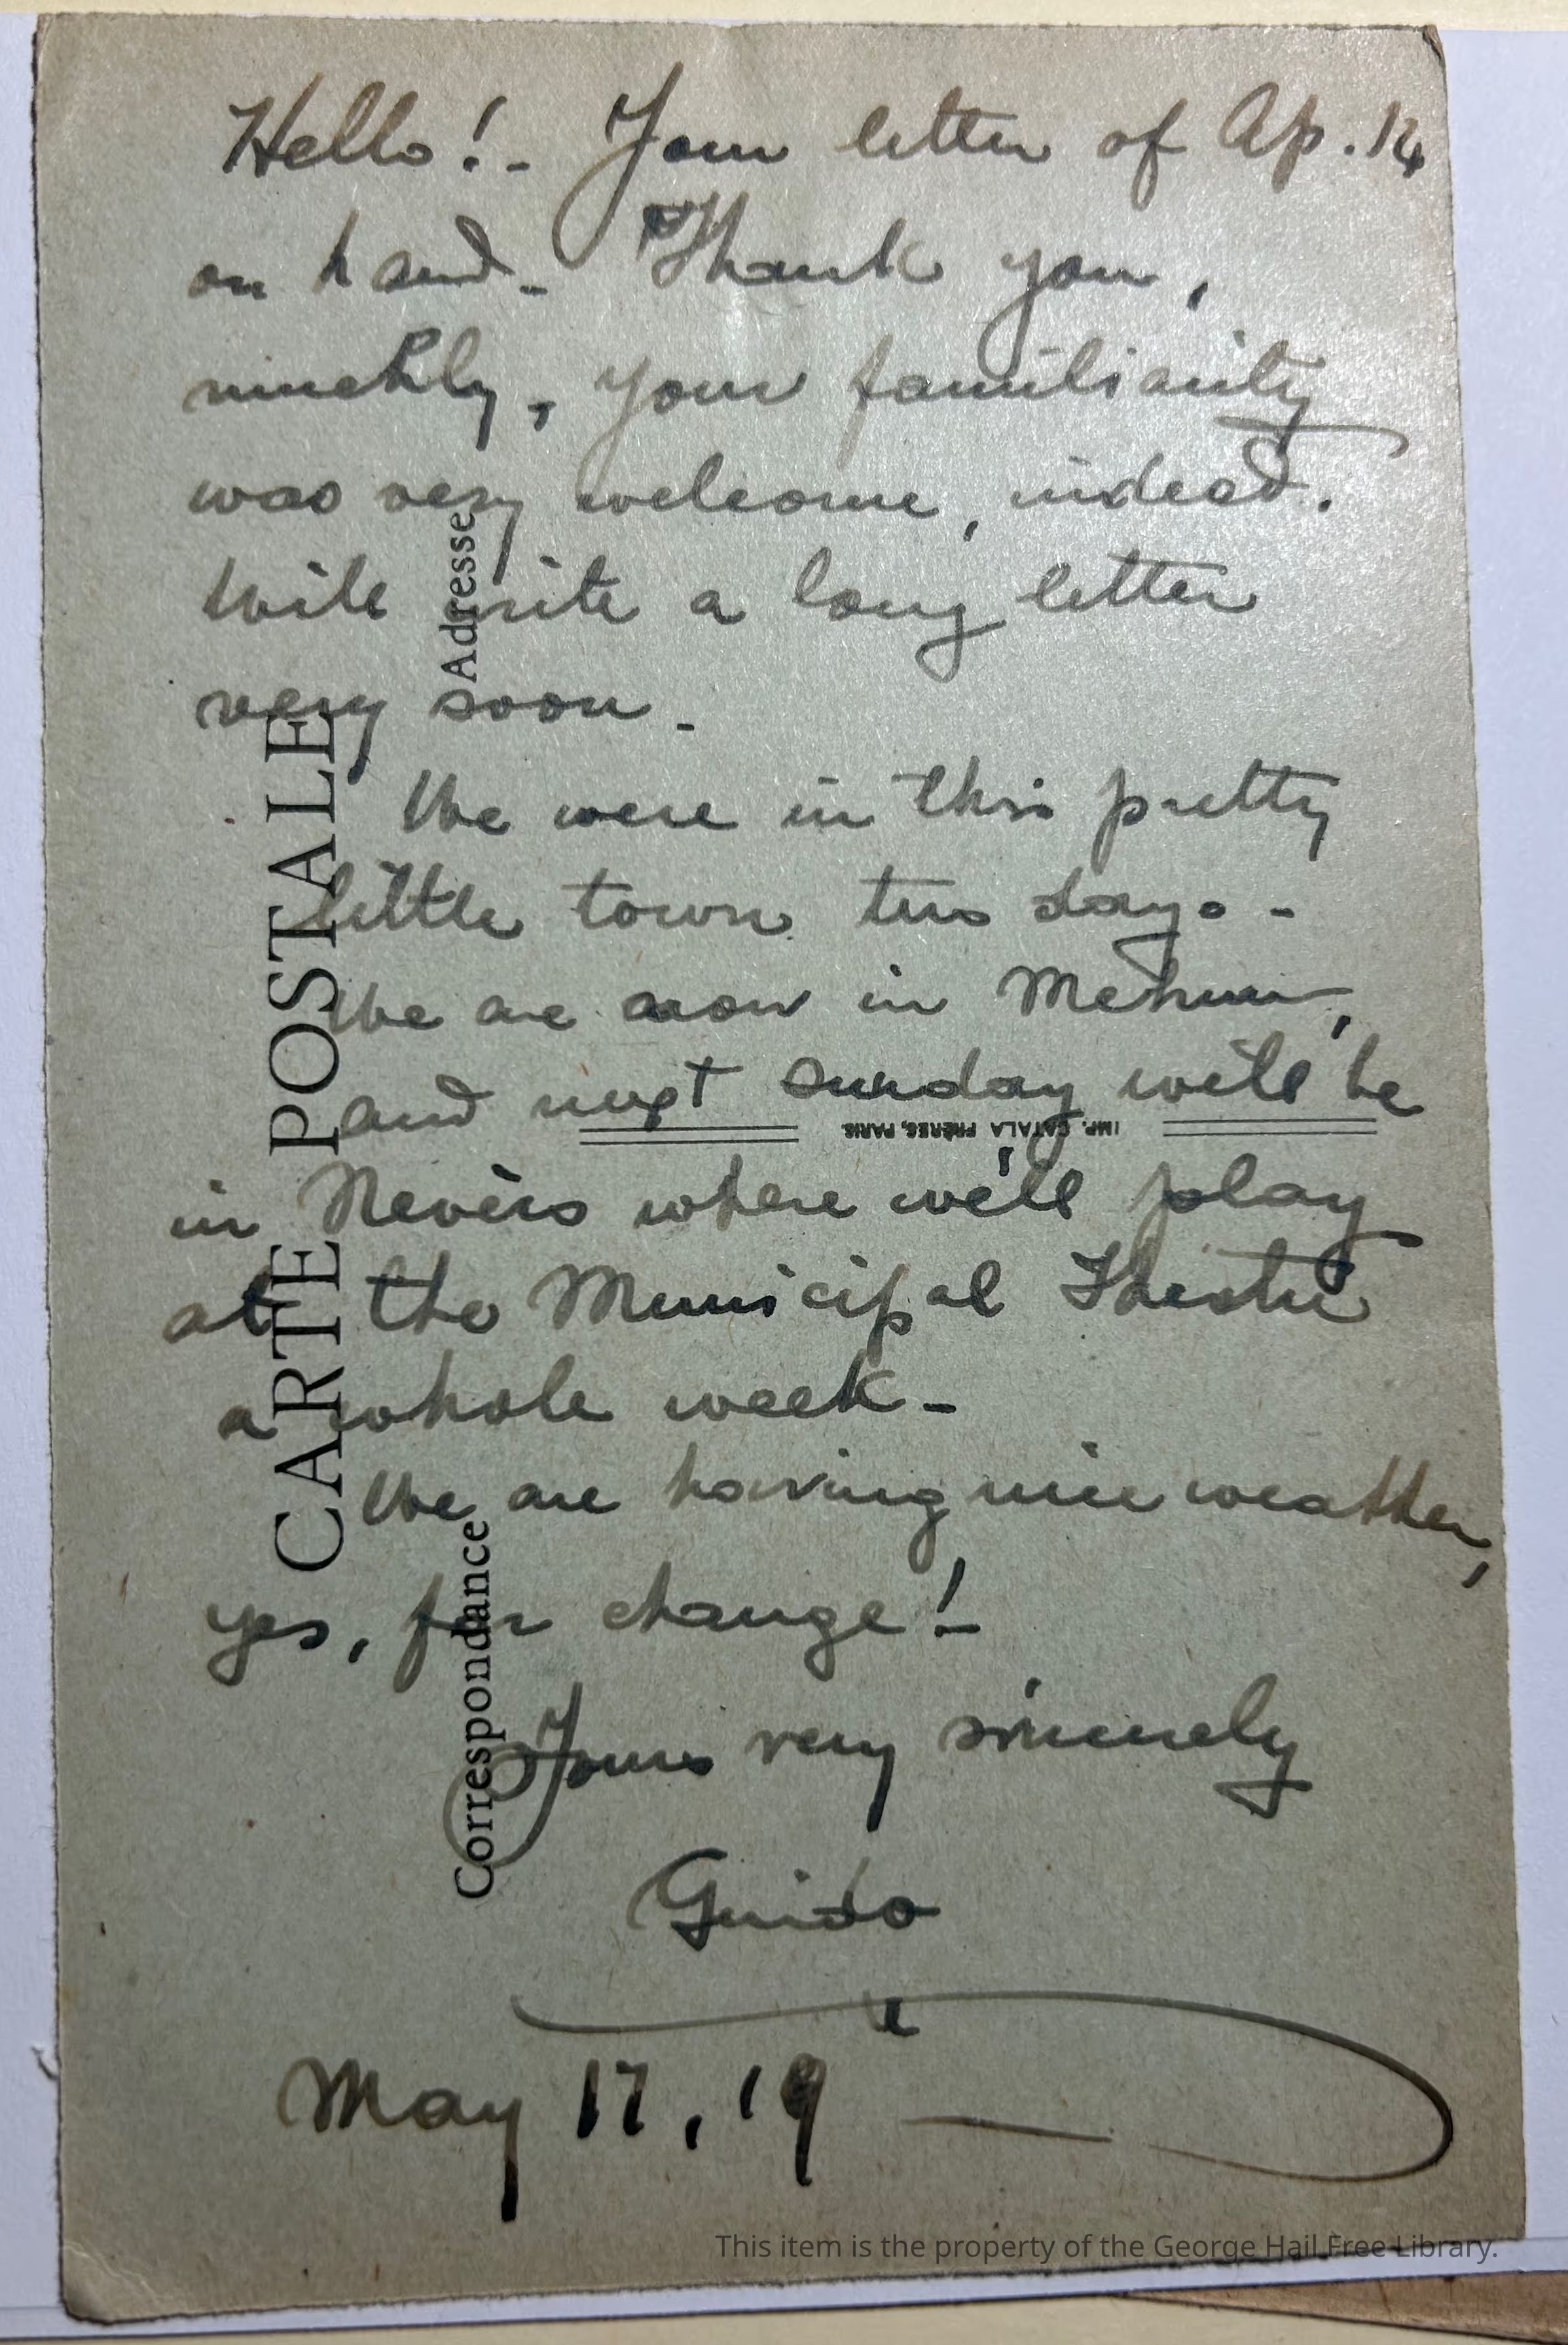 Hello!- Your letter of Ap. 14
on hand- Thank you,
muchly, your familiarity
was very welcome, indeed.
Will write a long letter
very soon-
We were in this pretty
little town two days-
We are now in Mehun,
and next Sunday will be
in Nevers where we'll play
at the Municipal Theatre
a whole week-
We are having nice weather,
yes, for change!-
Yours very sincerely
Guido
May 17, '19
CARTE POSTALE
Correspondance
Adresse
IMP. CATALA FRÈRES, PARIS
This item is the property of the George Hail Free Library.